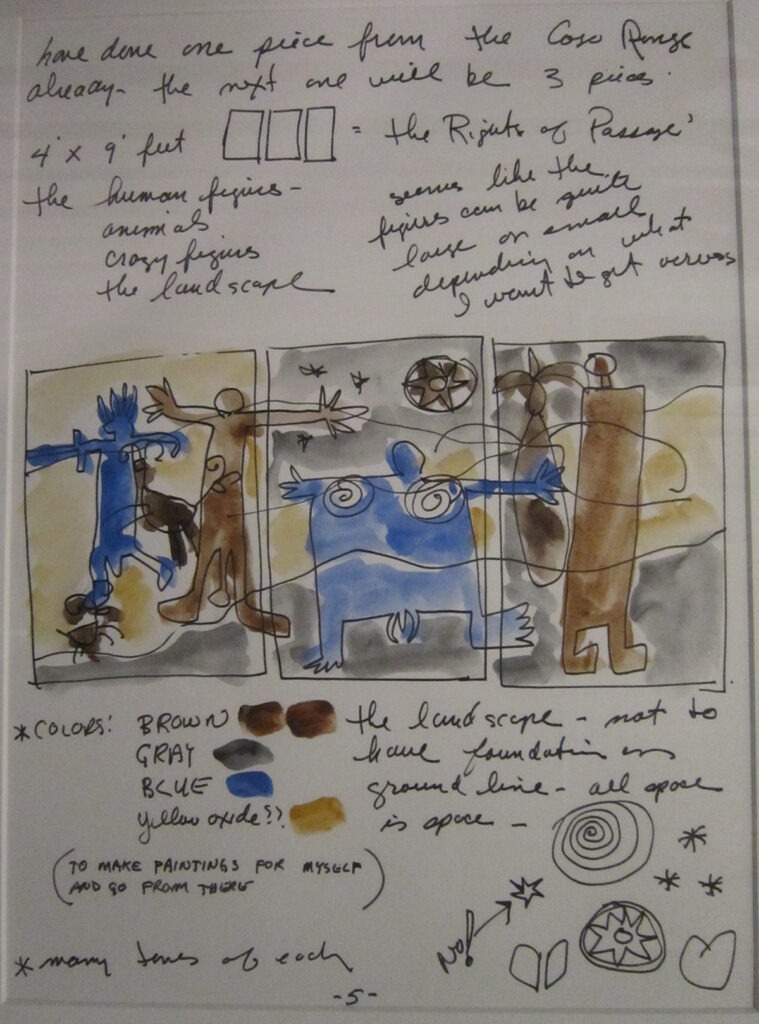 have done one piece from the Coso Range
already - the next one will be 3 pieces.
4' x 9' feet = the Rights of Passage'
the human figures -
animals
crazy figures
the landscape
seems like the
figures can be quite
large or small
depending on what
I want to get across
* COLORS: BROWN
GRAY
BLUE
yellow oxide??
the landscape - not to
have foundation or
ground line - all space
is space -
(TO MAKE PAINTINGS FOR MYSELF
AND GO FROM THERE)
NO!
* many tones of each
-5-